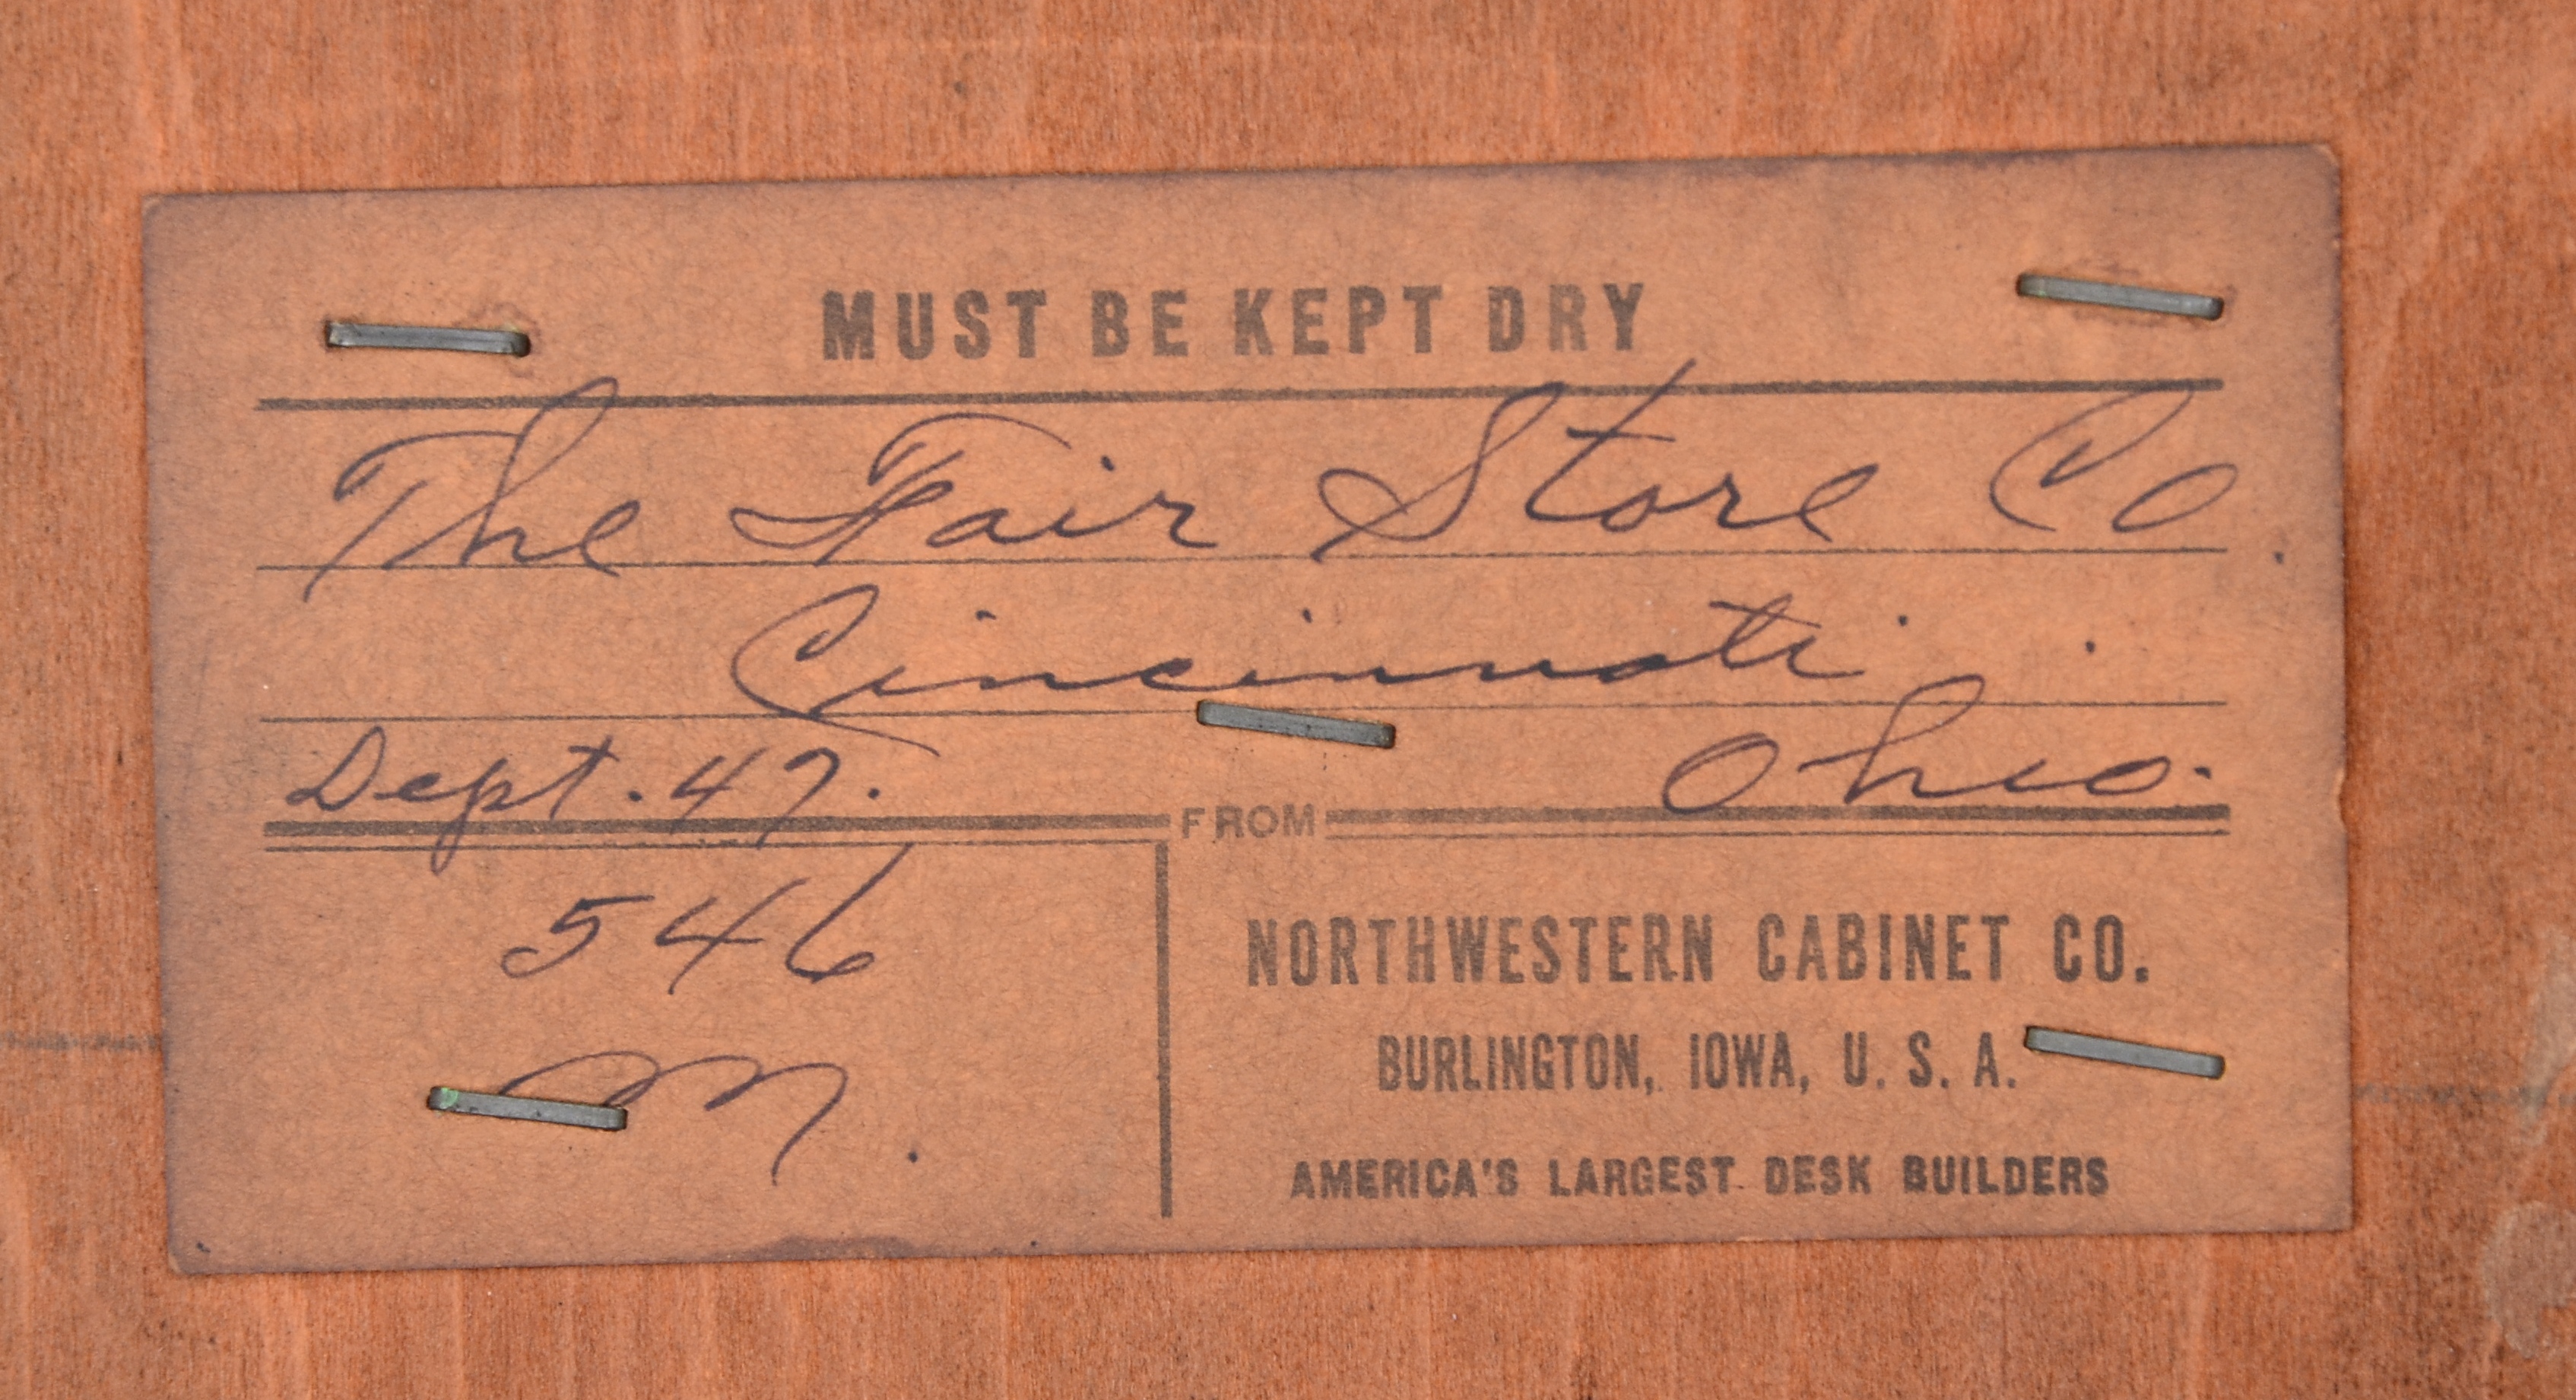 MUST BE KEPT DRY
The Fair Store Co.
Cincinnati
Dept. 47. Ohio.
FROM
546
M.
NORTHWESTERN CABINET CO.
BURLINGTON, IOWA, U. S. A.
AMERICA'S LARGEST DESK BUILDERS